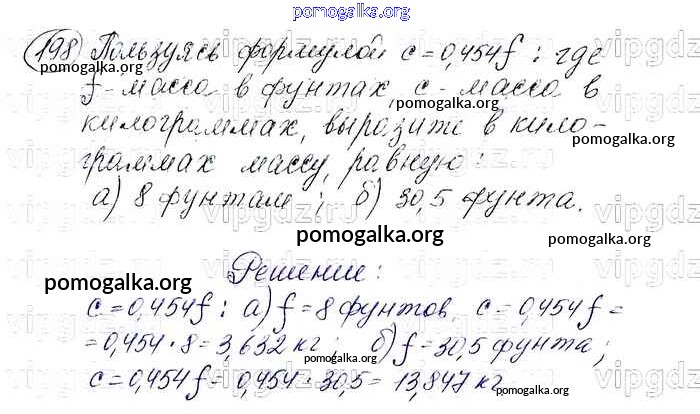 pomogalka.org
198 Пользуясь формулой c = 0,454f : где
f - масса в фунтах, c - масса в
pomogalka.org
килограммах, выразите в кило-
граммах массу, равную:
pomogalka.org
а) 8 фунтам ; б) 30,5 фунта.
pomogalka.org
pomogalka.org
Решение:
pomogalka.org
c = 0,454f : а) f = 8 фунтов, c = 0,454f =
= 0,454 · 8 = 3,632 кг ; б) f = 30,5 фунта ;
pomogalka.org
c = 0,454f = 0,454 · 30,5 = 13,847 кг
pomogalka.org